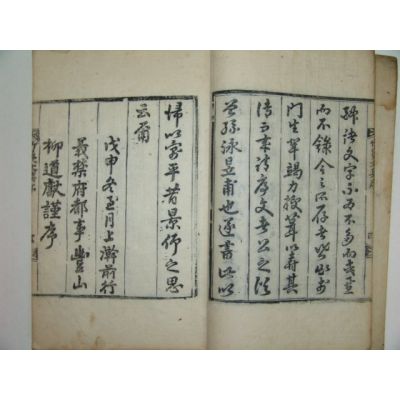 文字亦不為不多而或
而不錄今之所存者皆
門生輩竭力裒葺以壽其
傳
序文者公之從
曾孫泳昱甫也遂書此以
歸以寓平昔景仰之思
云爾
戊申冬至月上澣前行
義禁府都事豊山
柳道獻謹序